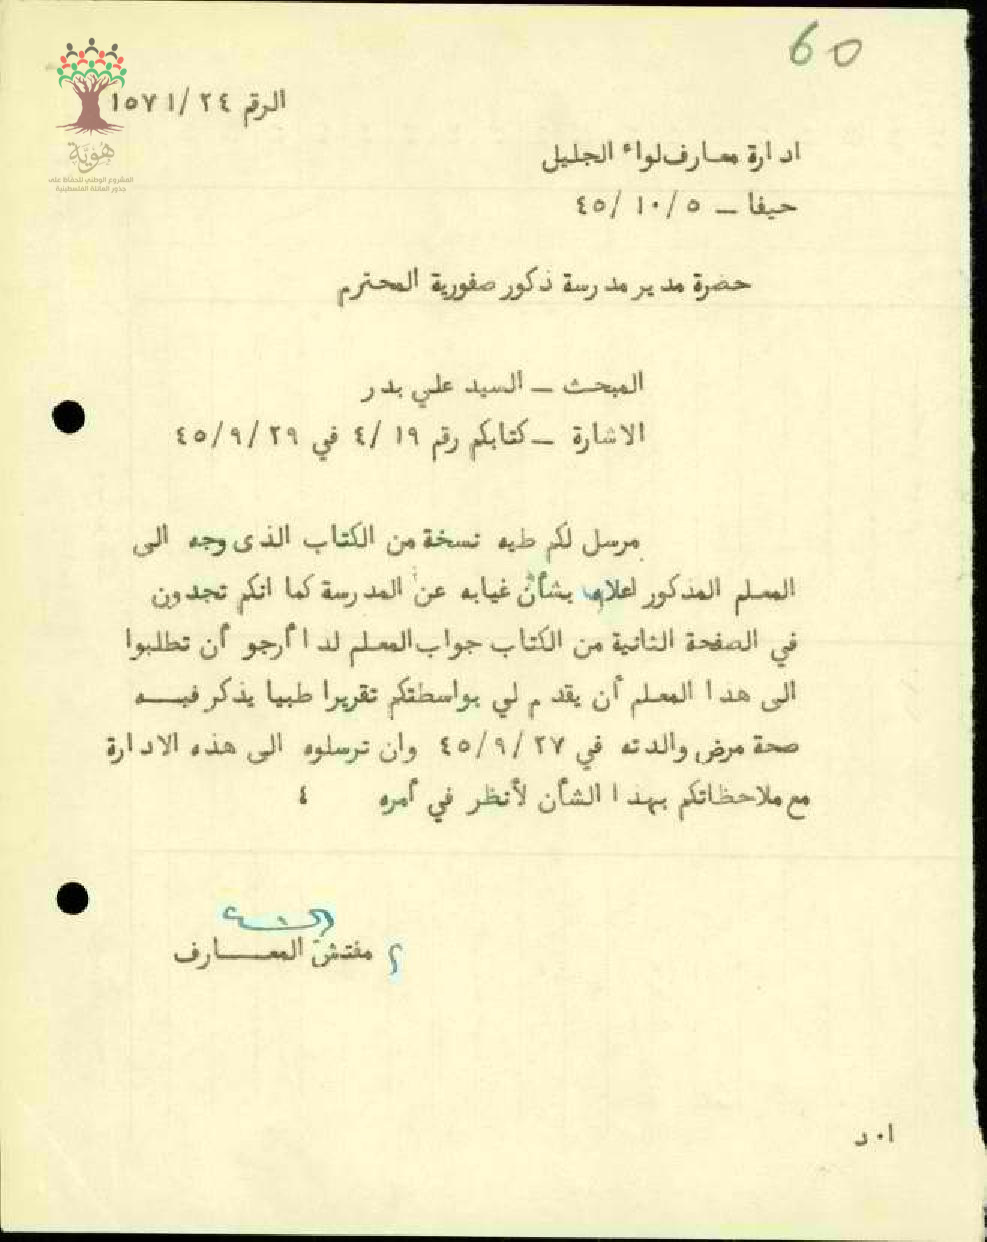 60
الرقم ٢٤ /١٥٧١
هُوِيَّة
المشروع الوطني للحفاظ على
جذور العائلة الفلسطينية
ادارة معارف لواء الجليل
حيفا ــ ٥ /١٠ /٤٥
حضرة مدير مدرسة ذكور صفورية المحترم
المبحث ــ السيد علي بدر
الاشارة ــ كتابكم رقم ١٩ /٤ في ٢٩ /٩ /٤٥
مرسل لكم طيه نسخة من الكتاب الذى وجه الى
المعلم المذكور اعلاه بشأن غيابه عن المدرسة كما انكم تجدون
في الصفحة الثانية من الكتاب جواب المعلم لدا أرجو أن تطلبوا
الى هدا المعلم أن يقدم لي بواسطتكم تقريرا طبيا يذكر فيــه
صحة مرض والدته في ٢٧ /٩ /٤٥ وان ترسلوه الى هذه الادارة
مع ملاحظاتكم بهدا الشأن لأنظر في أمره ٤
مفتش المعــــارف
ا٠د